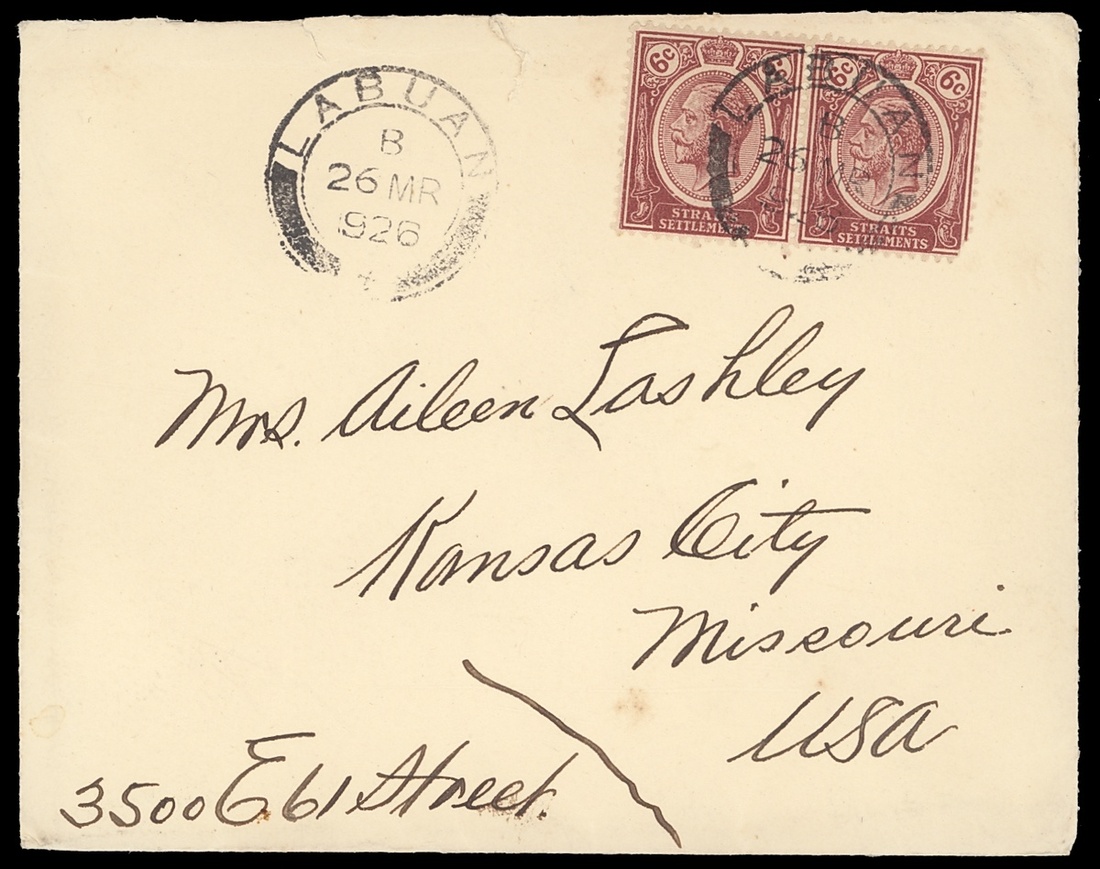 LABUAN
B
26 MR
1926
6c 6c
STRAITS
SETTLEMENTS
6c 6c
STRAITS
SETTLEMENTS
LABUAN
B
26 MR
Mrs. Aileen Lashley
Kansas City
Missouri
USA
3500 E 61 Street.